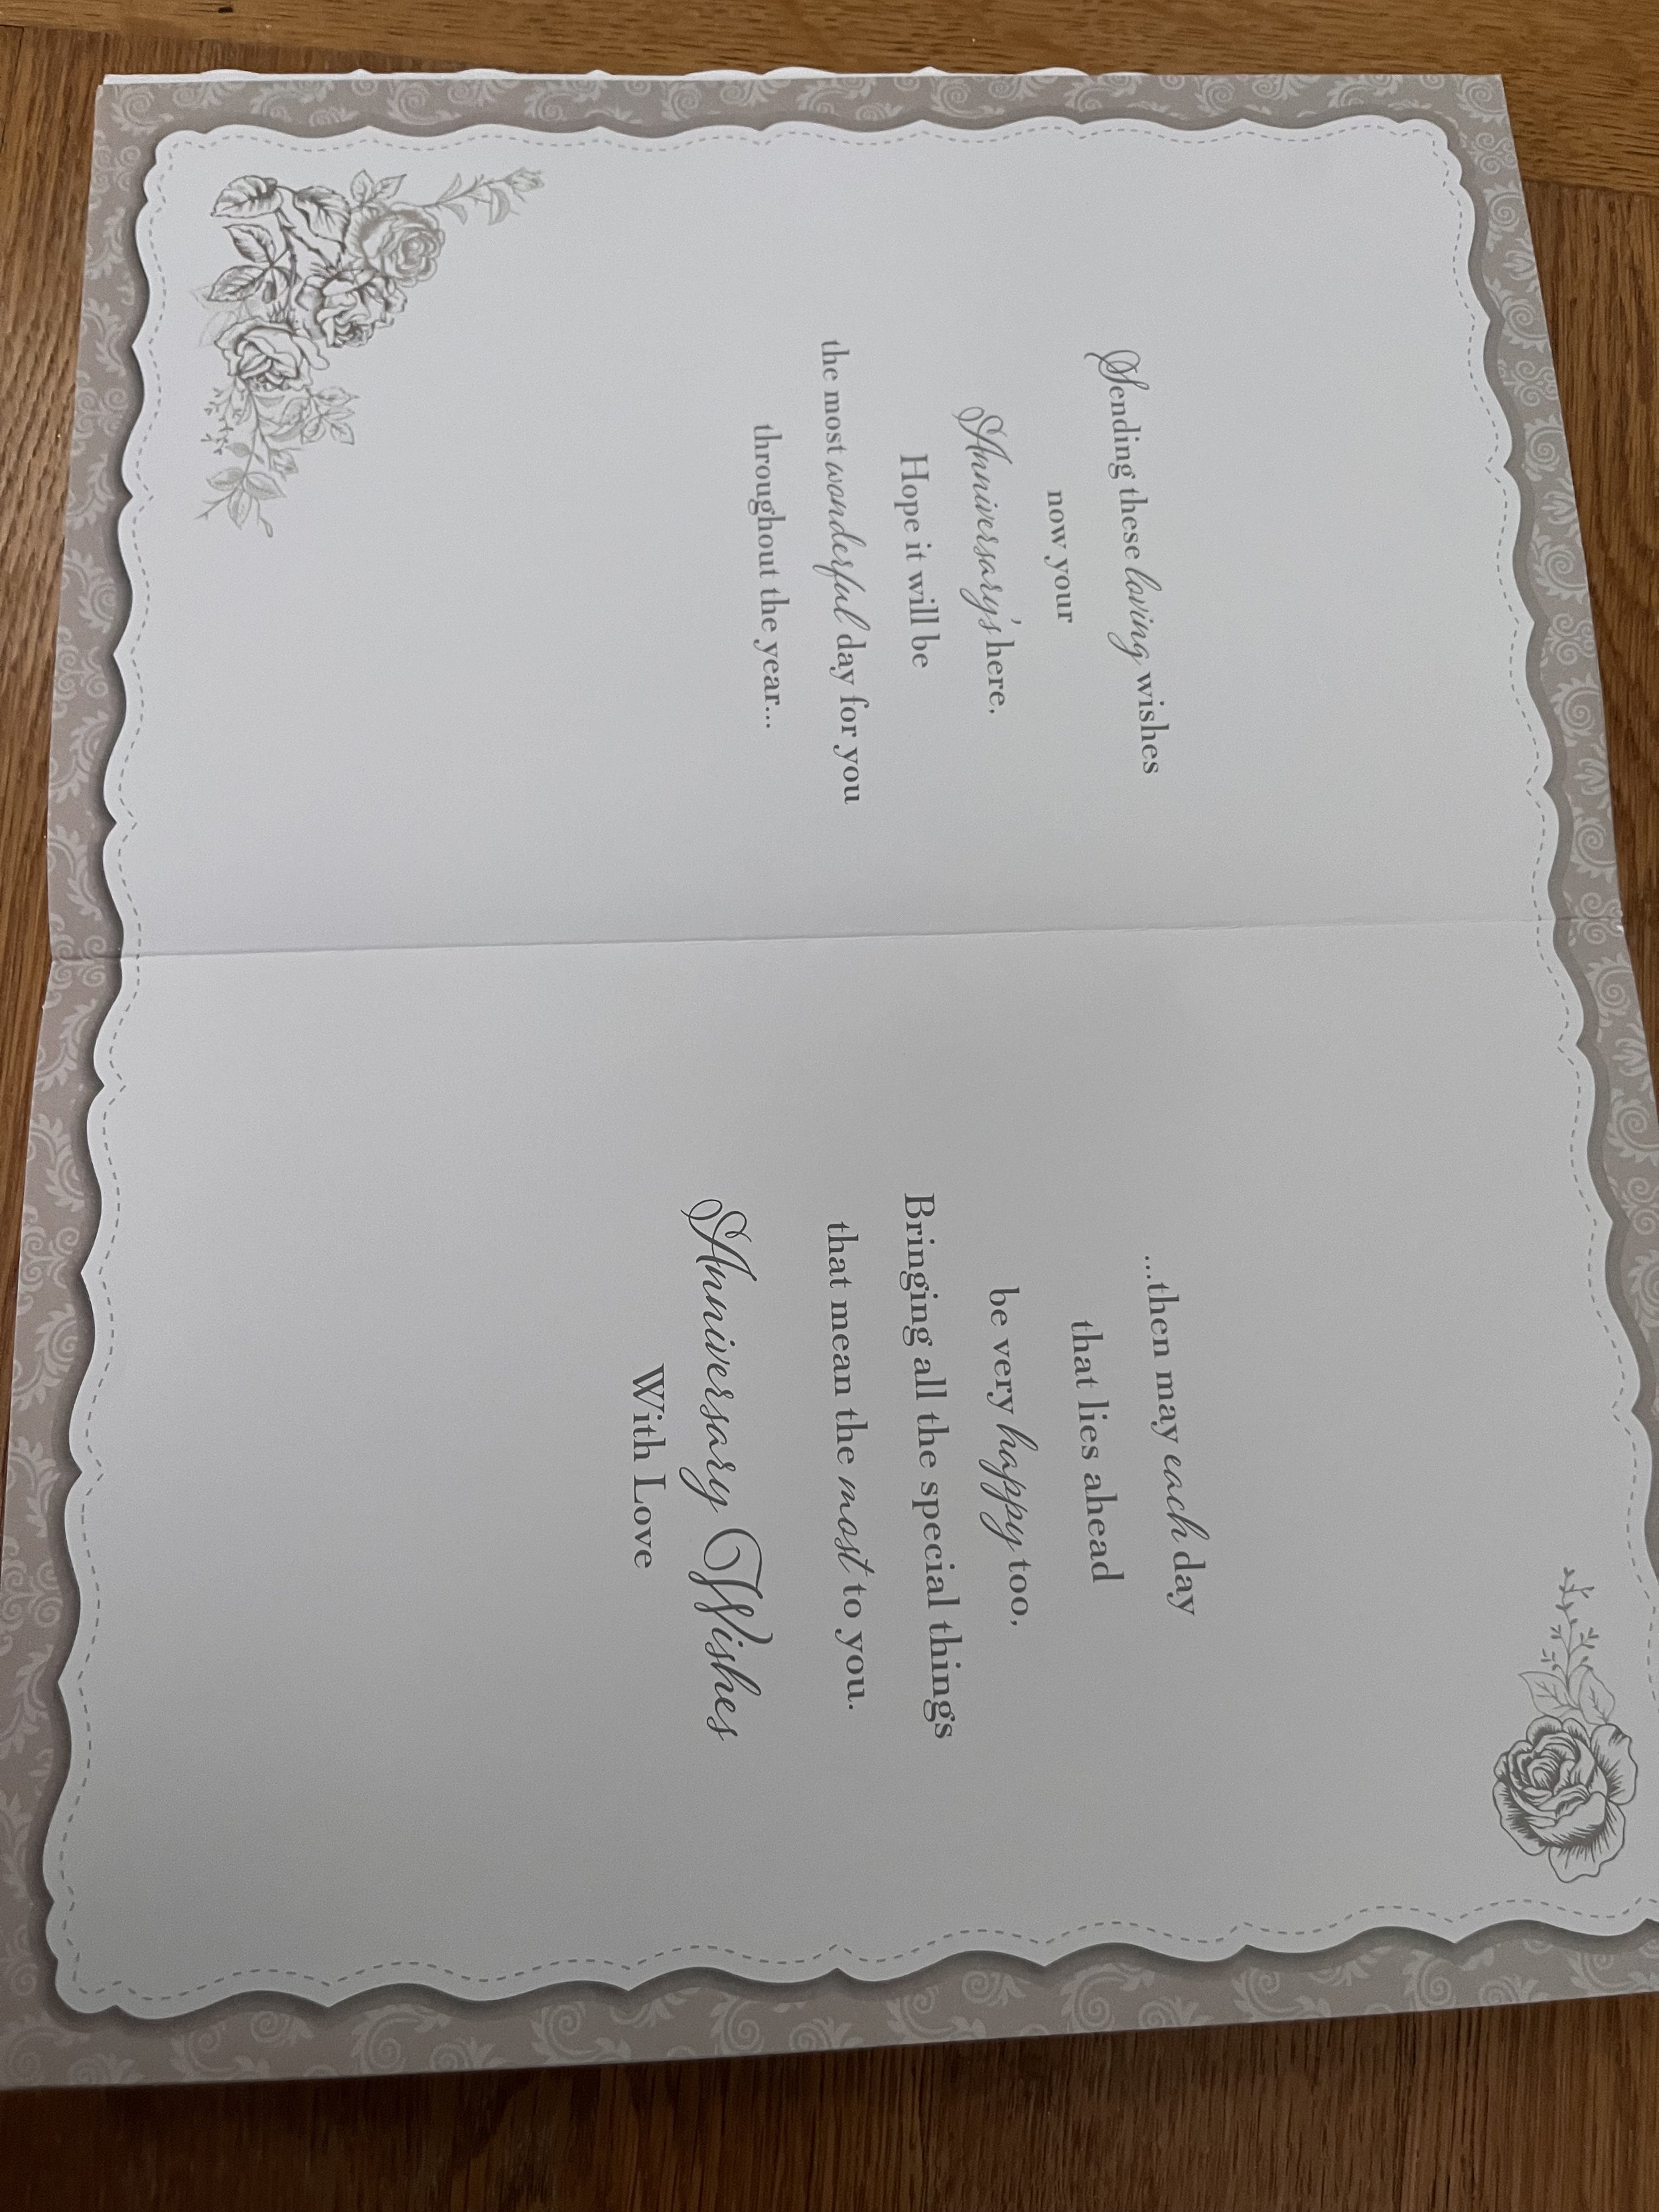 Sending these loving wishes
now your
Anniversary's here,
Hope it will be
the most wonderful day for you
throughout the year...
...then may each day
that lies ahead
be very happy too,
Bringing all the special things
that mean the most to you.
Anniversary Wishes
With Love